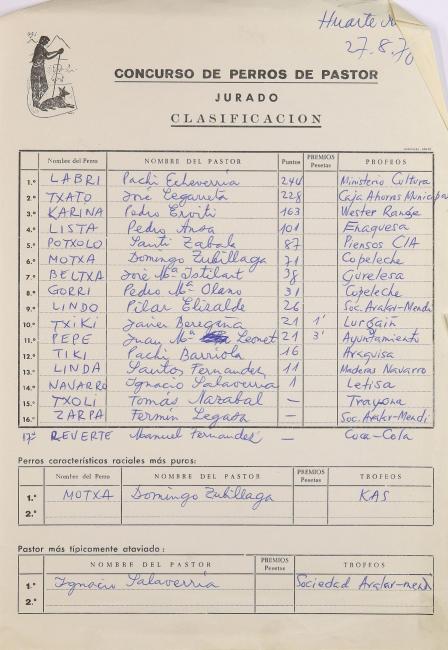 Huarte A
27.8.70
CONCURSO DE PERROS DE PASTOR
JURADO
CLASIFICACION
Nombre del Perro NOMBRE DEL PASTOR Puntos PREMIOS Pesetas TROFEOS
1.º LABRI Pachi Echeverria 244 Ministerio Cultura
2.º TXATO José Legarreta 228 Caja Ahorros Municipal
3.º KARINA Pedro Erviti 163 Wester Ranoje
4.º LISTA Pedro Ansa 101 Enaquesa
5.º POTXOLO Santi Zabala 87 Piensos CIA
6.º MOTXA Domingo Zubillaga 71 Copeleche
7.º BELTXA José Mª Istilart 38 Gurelesa
8.º GORRI Pedro Mª Olano 31 Copeleche
9.º LINDO Pilar Elizalde 26 Soc. Aralar-Mendi
10.º TXIKI Javier Beregaña 21 1' Lurgain
11.º PEPE Juan Mª Leonet 21 3' Ayuntamiento
12.º TIKI Pachi Barriola 16 Araquisa
13.º LINDA Santos Fernandez 11 Maderas Navarro
14.º NAVARRO Ignacio Salaverria 1 Letisa
15.º TXOLI Tomás Nazabal — Trayona
16.º ZARPA Fermín Legasa — Soc. Aralar-Mendi
17º REVERTE Manuel Fernandez — Coca-Cola
Perros características raciales más puros:
Nombre del Perro NOMBRE DEL PASTOR PREMIOS Pesetas TROFEOS
1.º MOTXA Domingo Zubillaga KAS
2.º
Pastor más típicamente ataviado:
NOMBRE DEL PASTOR PREMIOS Pesetas TROFEOS
1.º Ignacio Salaverría Sociedad Aralar-mendi
2.º